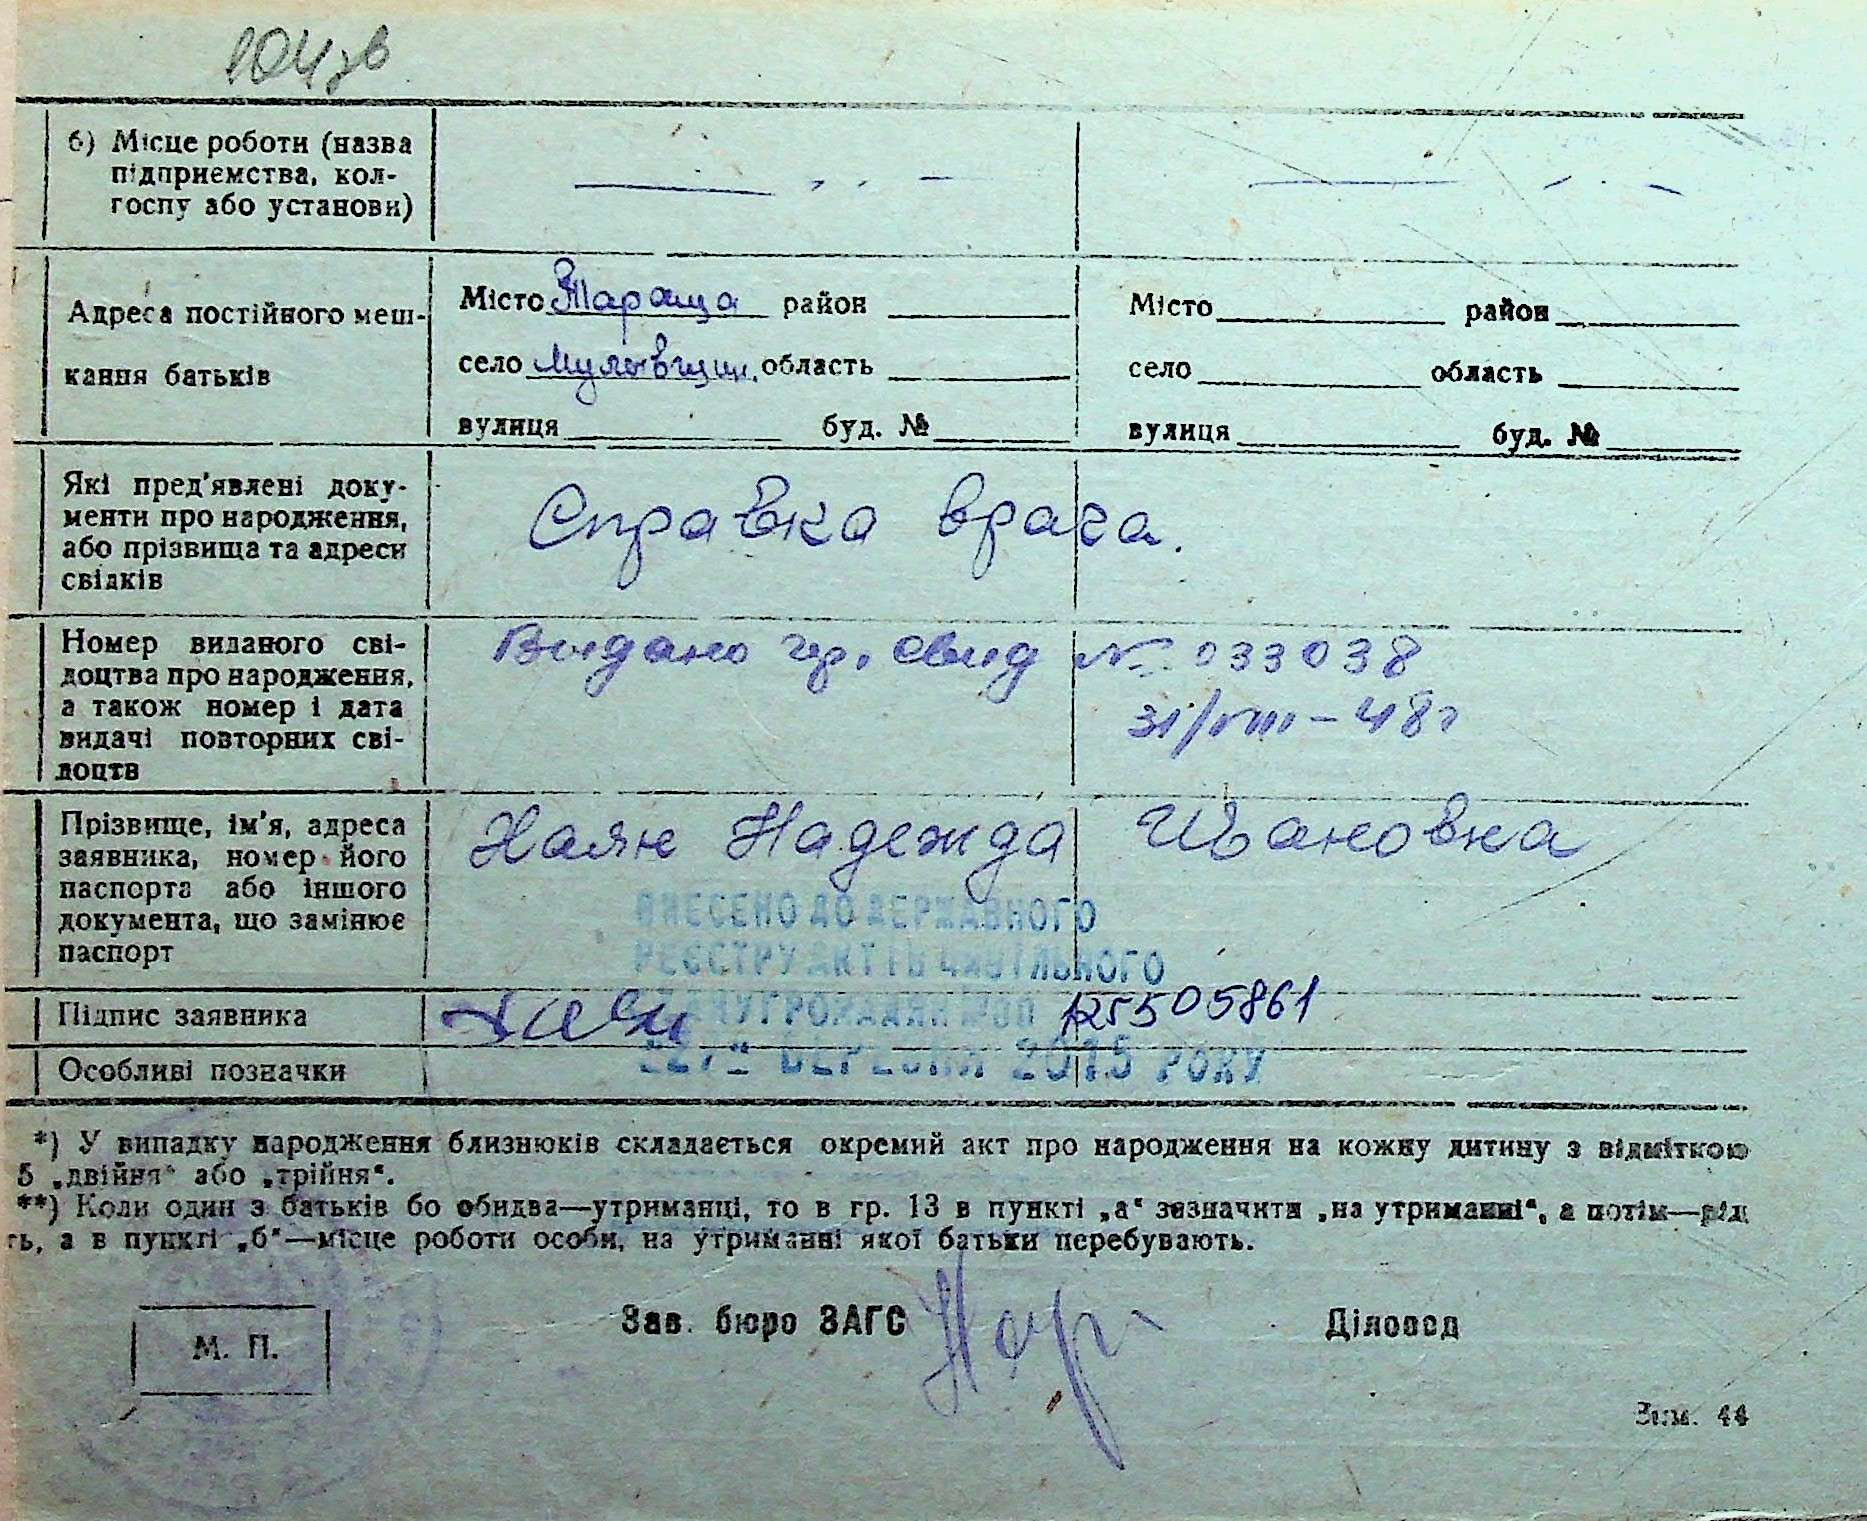 104 зв
б) Місце роботи (назва
підприємства, кол-
госпу або установи)
Адреса постійного меш-
кання батьків
Місто Тараща район
село область
вулиця буд. №
Місто район
село область
вулиця буд. №
Які пред'явлені доку-
менти про народження,
або прізвища та адреси
свідків
Справка врача.
Номер виданого сві-
доцтва про народження,
а також номер і дата
видачі повторних сві-
доцтв
Выдано гр. свид № 033038
31/VIII-48г
Прізвище, ім'я, адреса
заявника, номер його
паспорта або іншого
документа, що замінює
паспорт
Надежда Ивановна
ВНЕСЕНО ДО ДЕРЖАВНОГО
РЕЄСТРУ АКТІВ ЦИВІЛЬНОГО
СТАНУ ГРОМАДЯН
Підпис заявника
125505861
БЕРЕЗНЯ 2015 РОКУ
Особливі позначки
*) У випадку народження близнюків складається окремий акт про народження на кожну дитину з відміткою
5 „двійня“ або „трійня“.
**) Коли один з батьків бо обидва—утриманці, то в гр. 13 в пункті „а“ зазначити „на утриманні“, а потім—рід
ть, а в пункті „б“—місце роботи особи, на утриманні якої батьки перебувають.
М. П.
Зав. бюро ЗАГС
Діловод
Зам. 44